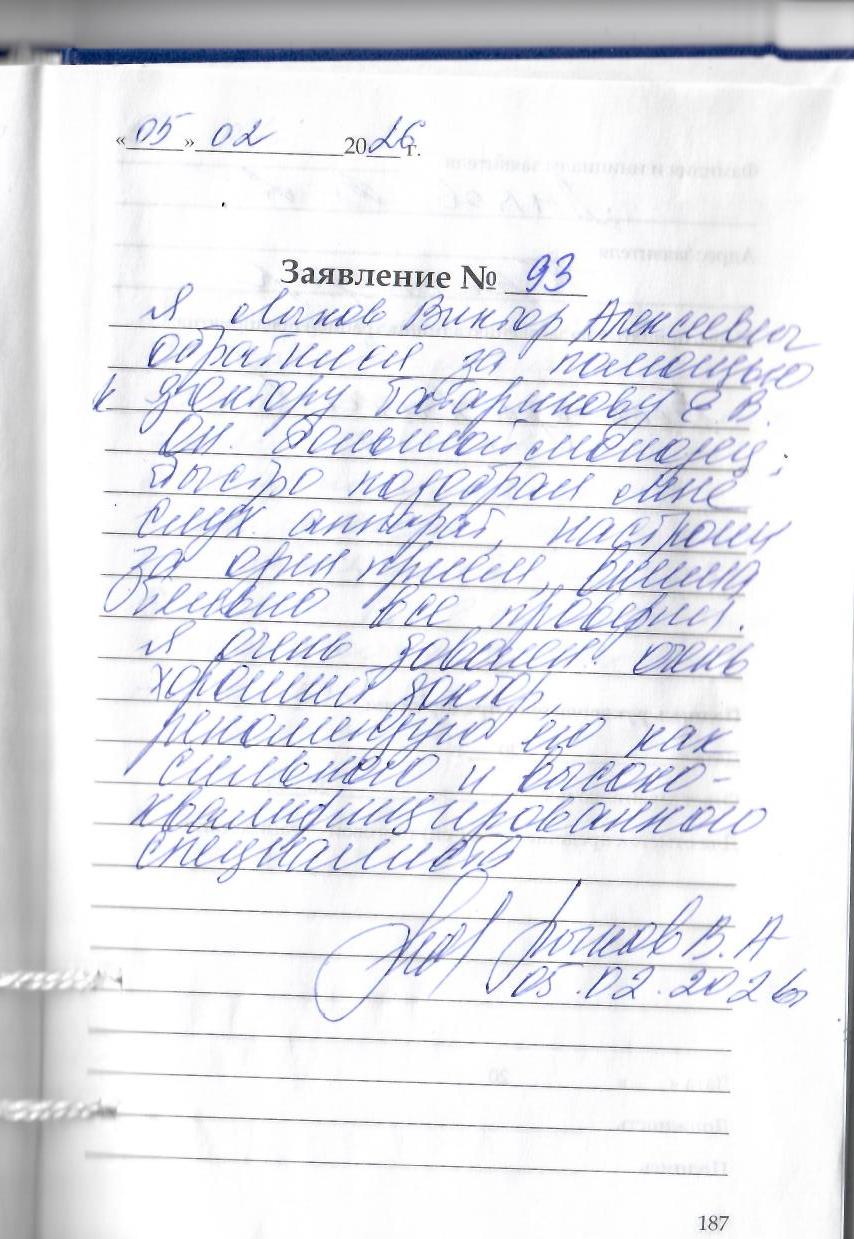 «05» 02 2026 г.
Заявление № 93
Я Лыков Виктор Алексеевич
обратился за помощью
к доктору Татаринову Е.В.
Он большой молодец,
быстро подобрал мне
слух. аппарат, настроил
за один прием, внима
тельно все проверил.
Я очень доволен. очень
хороший доктор,
рекомендую его как
сильного и высоко-
квалифицированного
специалиста
Лыков В. А
05.02.2026г
187